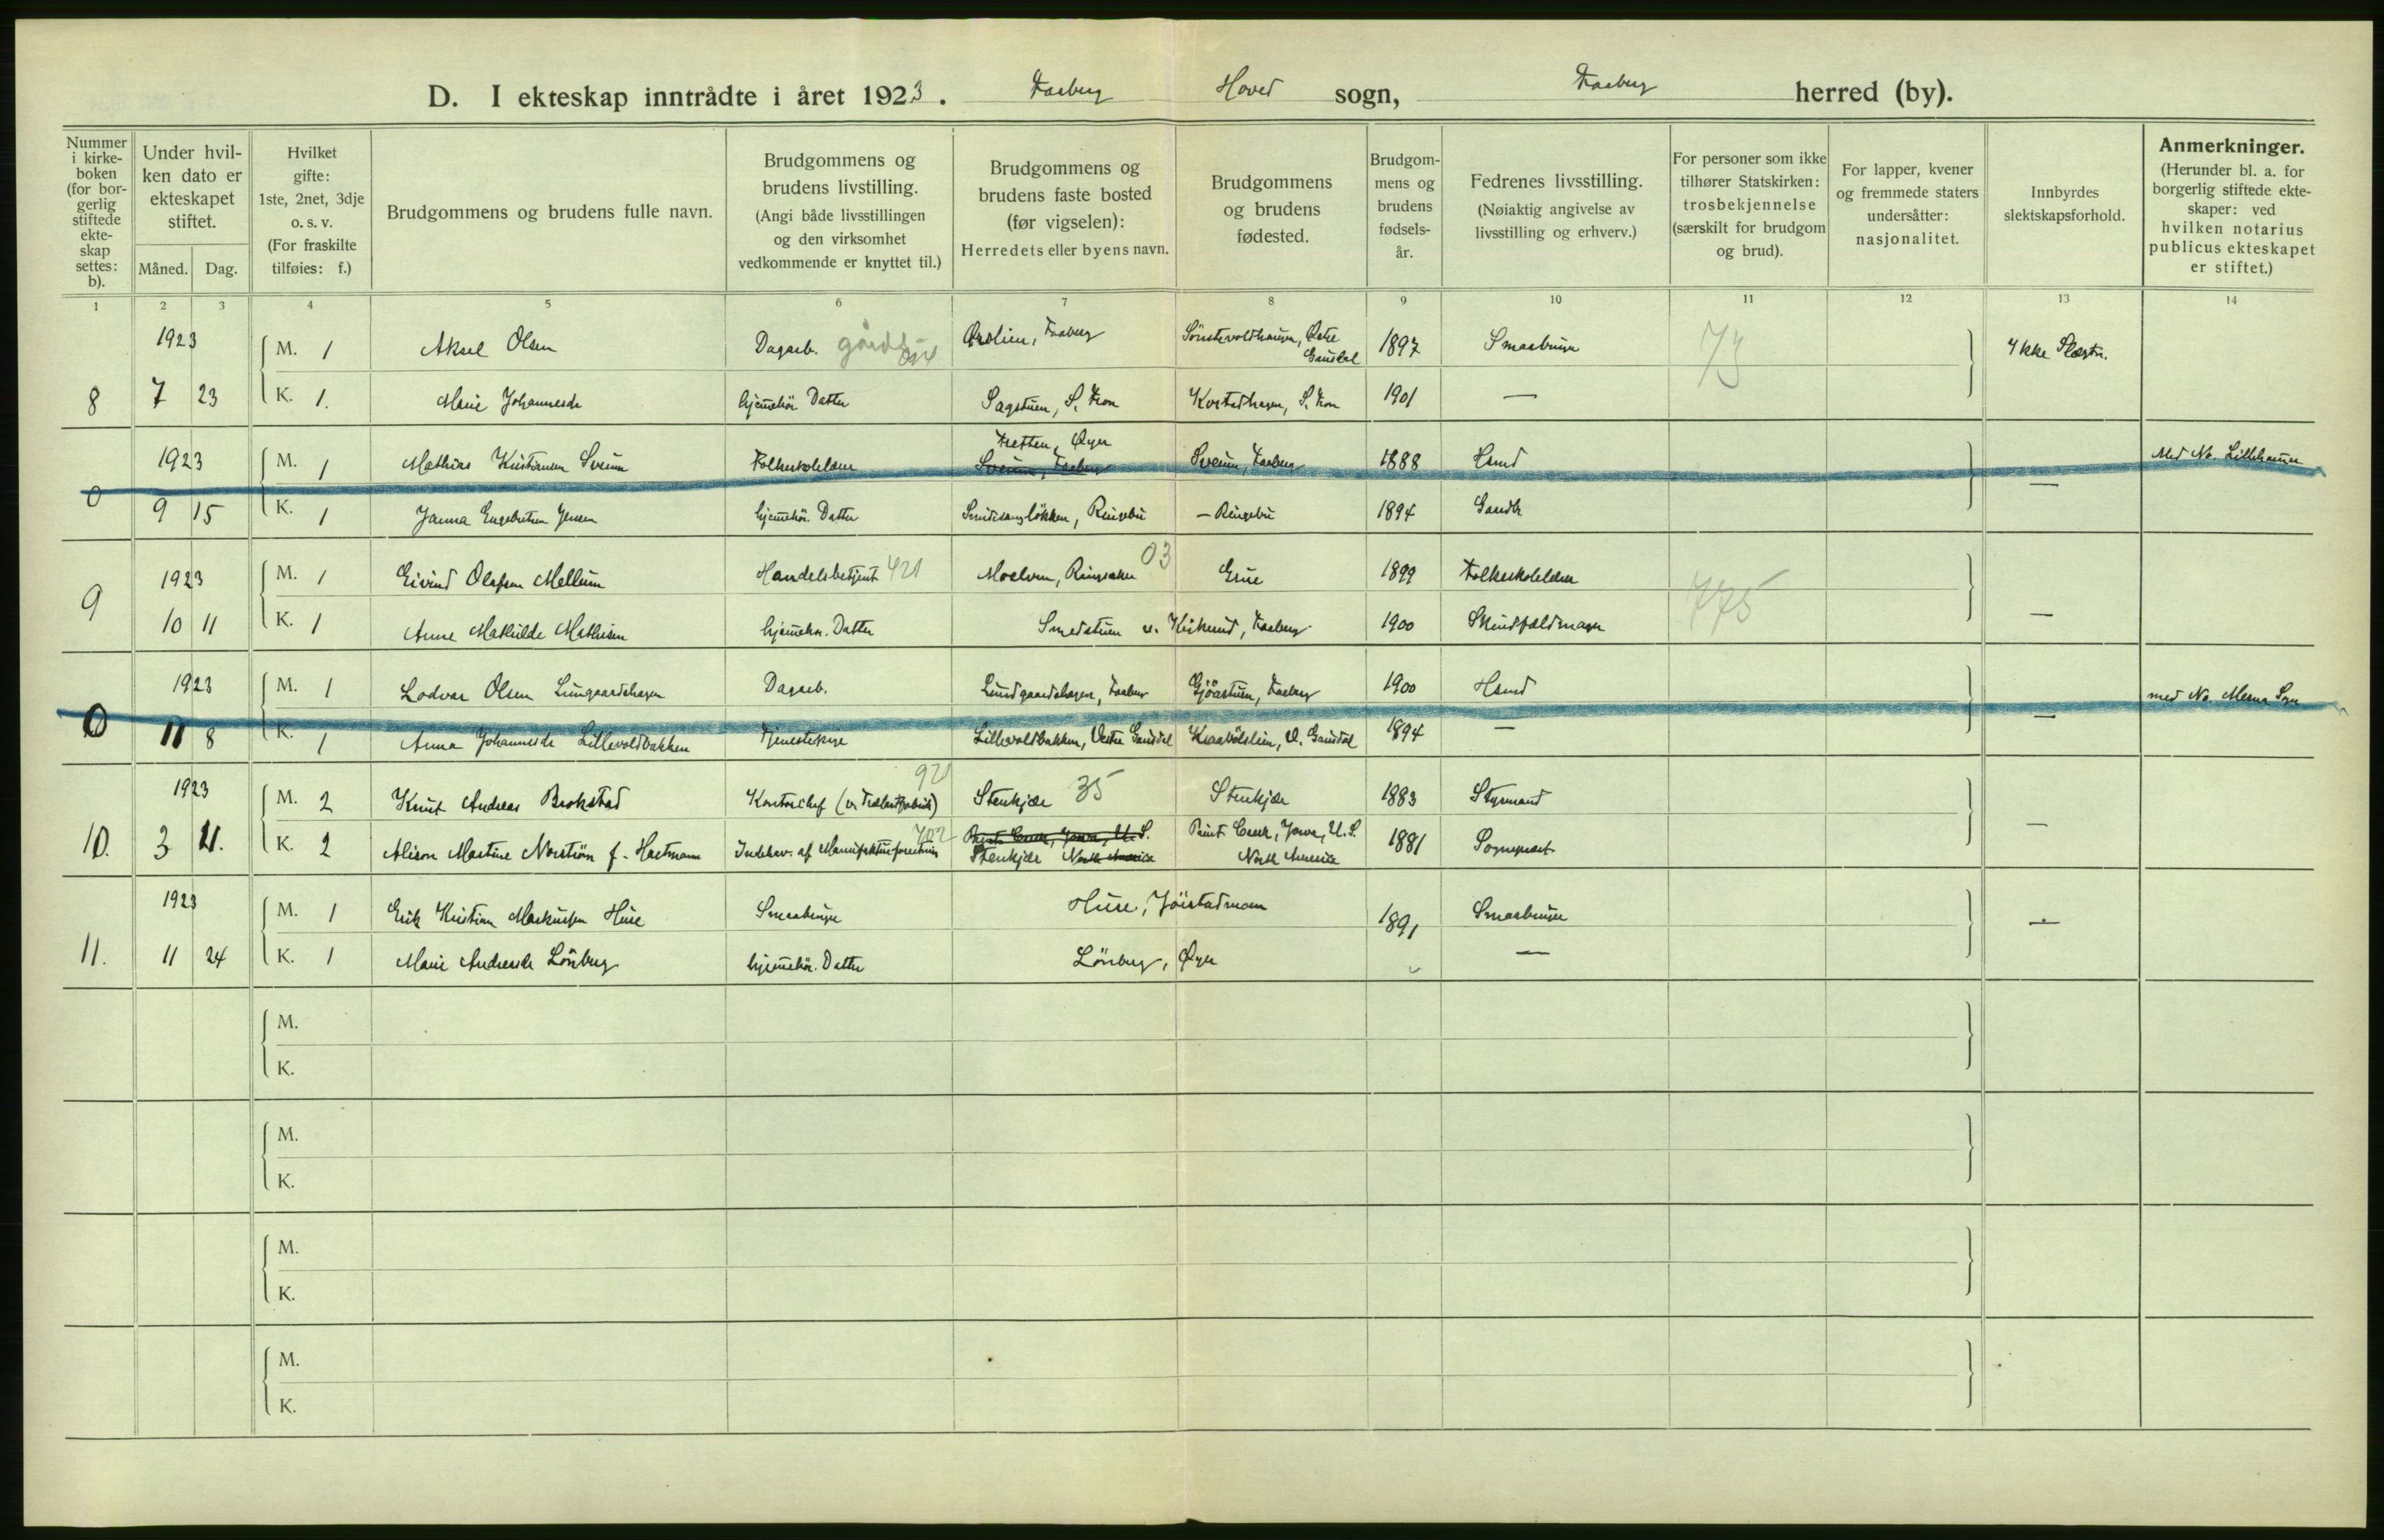 D. I ekteskap inntrådte i året 1923. Faaberg Hoved sogn, Faaberg herred (by).
Nummer i kirke-boken (for bor-gerlig stiftede ekte-skap settes: b).
Under hvil-ken dato er ekteskapet stiftet.
Måned. Dag.
Hvilket gifte: 1ste, 2net, 3dje o. s. v. (For fraskilte tilføies: f.)
Brudgommens og brudens fulle navn.
Brudgommens og brudens livstilling. (Angi både livsstillingen og den virksomhet vedkommende er knyttet til.)
Brudgommens og brudens faste bosted (før vigselen): Herredets eller byens navn.
Brudgommens og brudens fødested.
Brudgom-mens og brudens fødsels-år.
Fedrenes livsstilling. (Nøiaktig angivelse av livsstilling og erhverv.)
For personer som ikke tilhører Statskirken: trosbekjennelse (særskilt for brudgom og brud).
For lapper, kvener og fremmede staters undersåtter: nasjonalitet.
Innbyrdes slektskapsforhold.
Anmerkninger. (Herunder bl. a. for borgerlig stiftede ekte-skaper: ved hvilken notarius publicus ekteskapet er stiftet.)
1 2 3 4 5 6 7 8 9 10 11 12 13 14
1923 M. 1 Aksel Olsen Dagarb. Faaberg Østre Gausdal 1897 Smaabruger Ikke Slegtn.
8 7 23 K. 1. Marie Johannesdr hjemmehör Datter Sagstuen, S. Fron S. Fron 1901 —
1923 M. 1 Mathias Kristiansen Sveum Folkeskolelærer Tretten, Øyer Sveum, Faaberg Sveum, Faaberg 1888 Hsmd Med No. Lillehammer
0 9 15 K. 1 Janna Engebretsen Jensen hjemmehör. Datter Ringebu — Ringebu 1894 Gaardbr —
1923 M. 1 Eivind Olafsen Mellum Handelsbetjent 421 Moelven, Ringsaker 03 Grue 1899 Folkeskolelærer 775
9 10 11 K. 1 Anne Mathilde Mathisen hjemmehör. Datter Smedstuen u. Kirkerud, Faaberg 1900 Skindfældmager —
1923 M. 1 Lodvar Olsen Lungaardshagen Dagarb. Lundgaardshagen, Faaberg Gjöastuen, Faaberg 1900 Hsmd med No. Mesna Sogn
0 11 8 K. 1 Anna Johannesdr Lillevoldbakken Tjenestepige Lillevoldbakken, Vestre Gausdal V. Gausdal 1894 — —
1923 M. 2 Knut Andreas Brokstad Kontorchef 921 Stenkjær 35 Stenkjær 1883 Styrmand
10. 3 21. K. 2 Alison Martine Norström f. Hartmann Indehav. af Manufakturforretning 702 Paint Creek, Jowa, U. S. North America Stenkjær Paint Creek, Jowa, U. S. North America 1881 Sogneprest —
1923 M. 1 Erik Kristian Markussen Huse Smaabruger Huse, Jöirstadmoen 1891 Smaabruger —
11. 11 24 K. 1 Marie Andreasdr Lönberg hjemmehör. Datter Lönberg, Øyer —
M.
K.
M.
K.
M.
K.
M.
K.